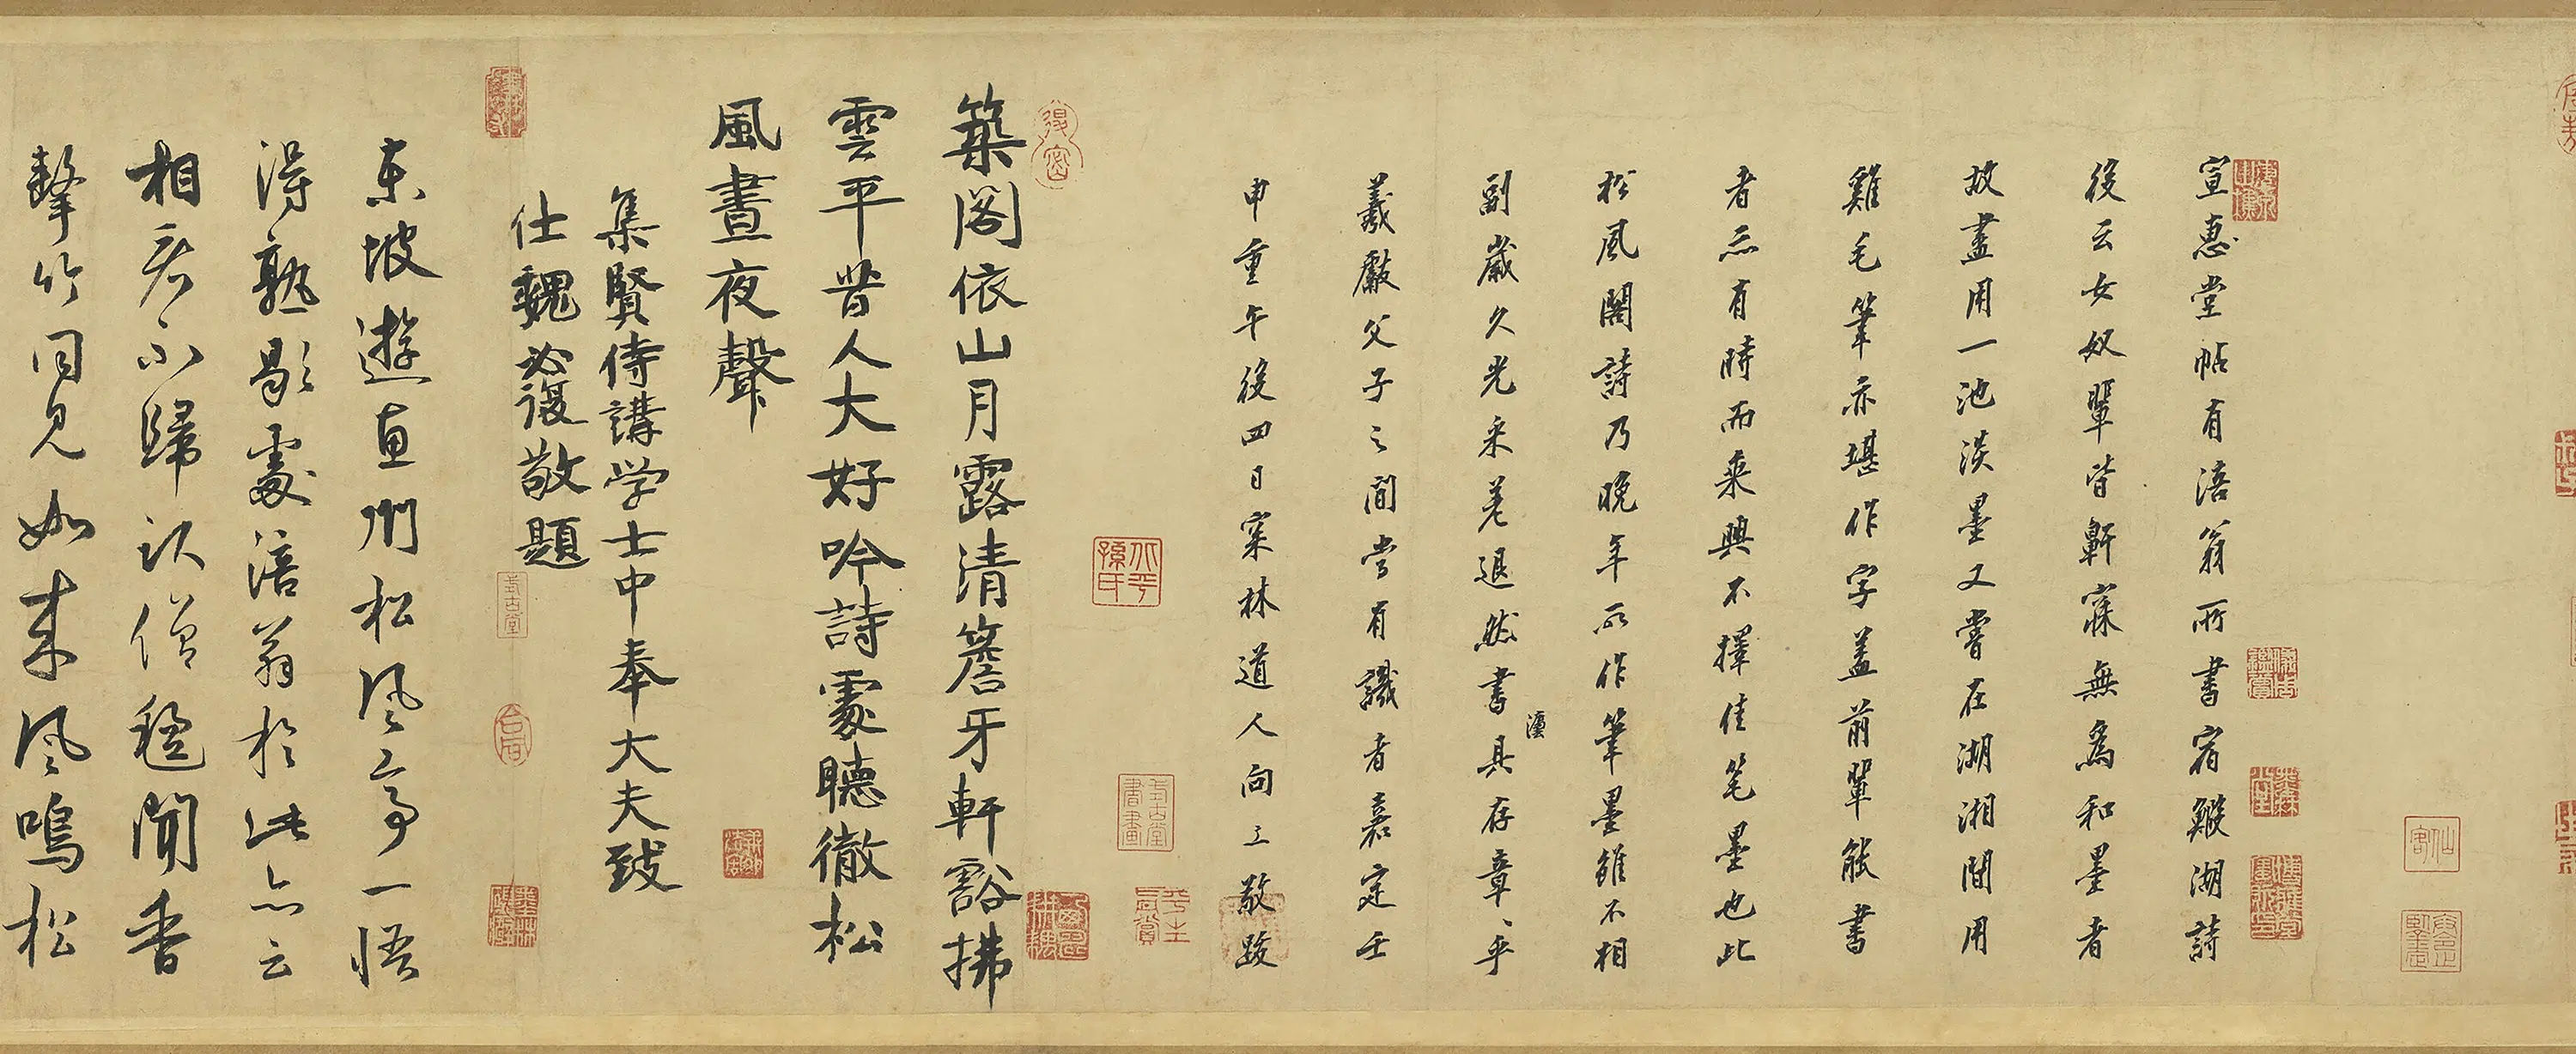 宣惠堂帖有涪翁所書宿鰕湖詩
後云女奴輩皆鼾寐無為和墨者
故盡用一池淡墨又嘗在湖湘間用
雞毛筆亦堪作字蓋前輩能書
者亦有時而乘興不擇佳笔墨也此
松風閣詩乃晚年所作筆墨雖不相
副歲久光采差退然書具存章、乎
濃
羲獻父子之間當有識者嘉定壬
申重午後四日寀林道人向工敬跋
築閣依山月露清簷牙軒豁拂
雲平昔人大好吟詩處聽徹松
風晝夜聲
集賢侍講学士中奉大夫致
仕魏必復敬題
東坡遊惠州松風亭一悟
得熟歇處涪翁於此亦云
相看不歸以僧聞香
擊竹同見如來風鳴松